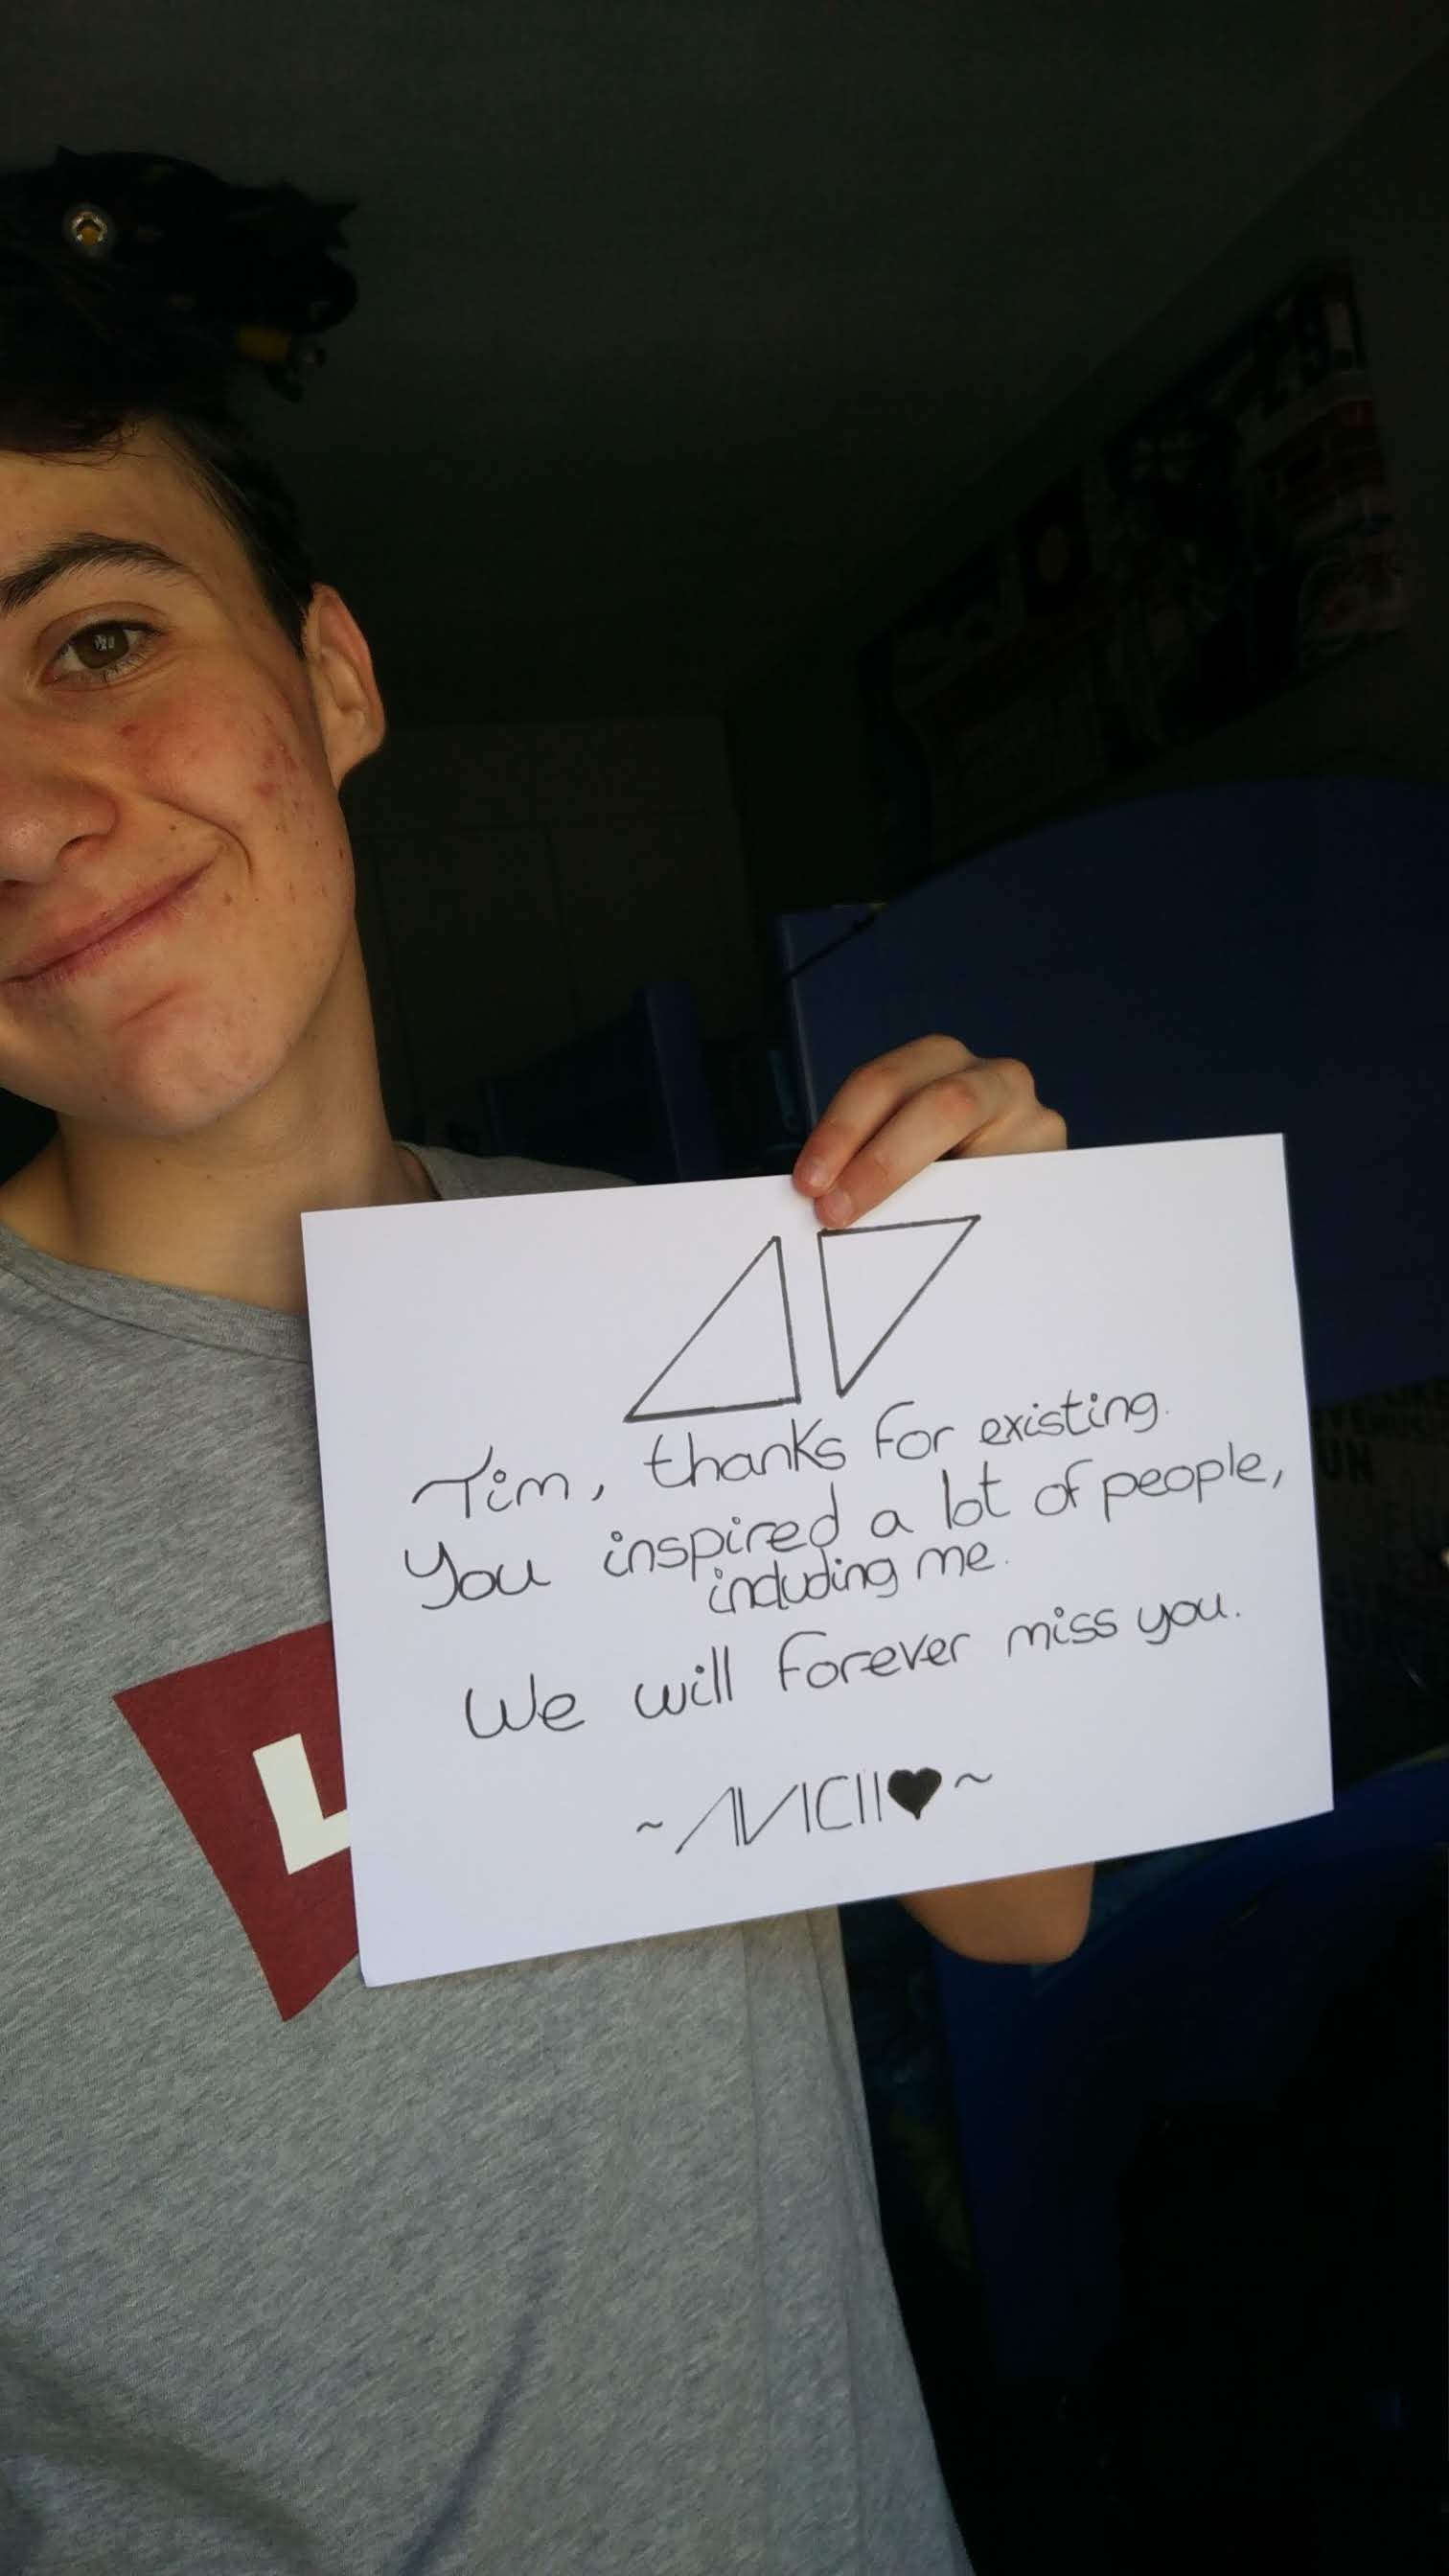 Tim, thanks for existing.
You inspired a lot of people,
including me.
We will forever miss you.
~AVICII♥~
L
UN